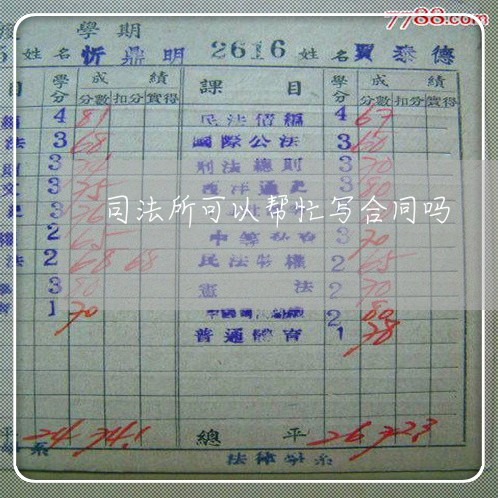 7788.com
學期
姓名 忻鼎明 2616 姓名 賈泰德
目 學分 成績 課目 學分 成績
分數 扣分 實得 分數 扣分 實得
4 81 民法債編 4 67
法 3 68 國際公法 3 60
3 刑法總則 3 70
3 75 西洋通史 3 80
3 76 3
司法所可以幫忙写合同吗
2 65 3 70
法 2 68 68 民法物權 2 65
3 80 憲法 2 70
1 70 2 80
普通體育 1 78
平 24 74.1 總平 26 72.3
系 法律學系